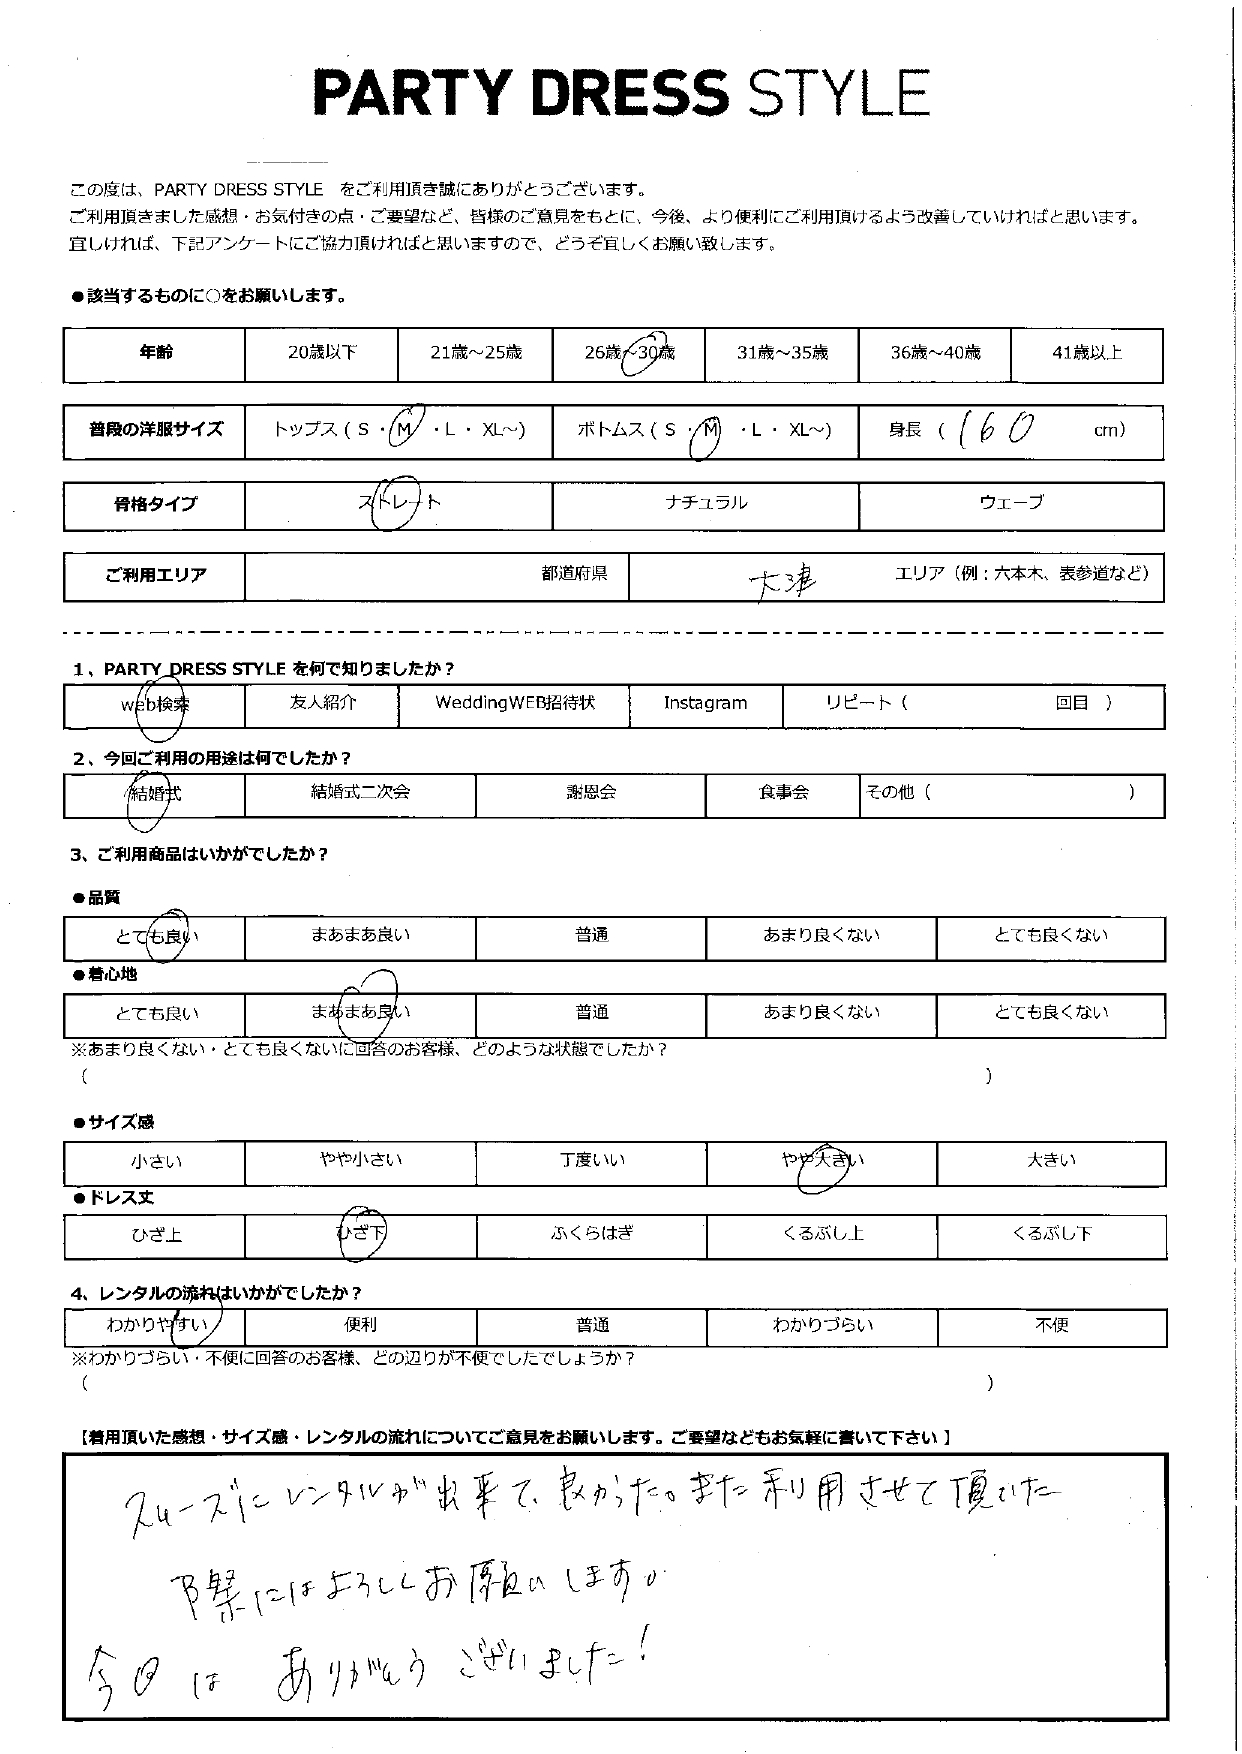 PARTY DRESS STYLE
この度は、PARTY DRESS STYLE をご利用頂き誠にありがとうございます。
ご利用頂きました感想・お気付きの点・ご要望など、皆様のご意見をもとに、今後、より便利にご利用頂けるよう改善していければと思います。
宜しければ、下記アンケートにご協力頂ければと思いますので、どうぞ宜しくお願い致します。
●該当するものに○をお願いします。
年齢 20歳以下 21歳～25歳 26歳～30歳 31歳～35歳 36歳～40歳 41歳以上
普段の洋服サイズ トップス ( S ・ M ・L ・ XL～) ボトムス ( S ・ M ・L ・ XL～) 身長 ( 160 cm)
骨格タイプ ストレート ナチュラル ウェーブ
ご利用エリア 都道府県 大津 エリア（例：六本木、表参道など）
1、PARTY DRESS STYLE を何で知りましたか？
web検索 友人紹介 WeddingWEB招待状 Instagram リピート（ 回目 ）
2、今回ご利用の用途は何でしたか？
結婚式 結婚式二次会 謝恩会 食事会 その他（ ）
3、ご利用商品はいかがでしたか？
●品質
とても良い まあまあ良い 普通 あまり良くない とても良くない
●着心地
とても良い まあまあ良い 普通 あまり良くない とても良くない
※あまり良くない・とても良くないに回答のお客様、どのような状態でしたか？
（ ）
●サイズ感
小さい やや小さい 丁度いい やや大きい 大きい
●ドレス丈
ひざ上 ひざ下 ふくらはぎ くるぶし上 くるぶし下
4、レンタルの流れはいかがでしたか？
わかりやすい 便利 普通 わかりづらい 不便
※わかりづらい・不便に回答のお客様、どの辺りが不便でしたでしょうか？
（ ）
【着用頂いた感想・サイズ感・レンタルの流れについてご意見をお願いします。ご要望などもお気軽に書いて下さい】
スムーズにレンタルが出来て、良かった。また利用させて頂いた
際にはよろしくお願いします。
今日は ありがとう ございました！